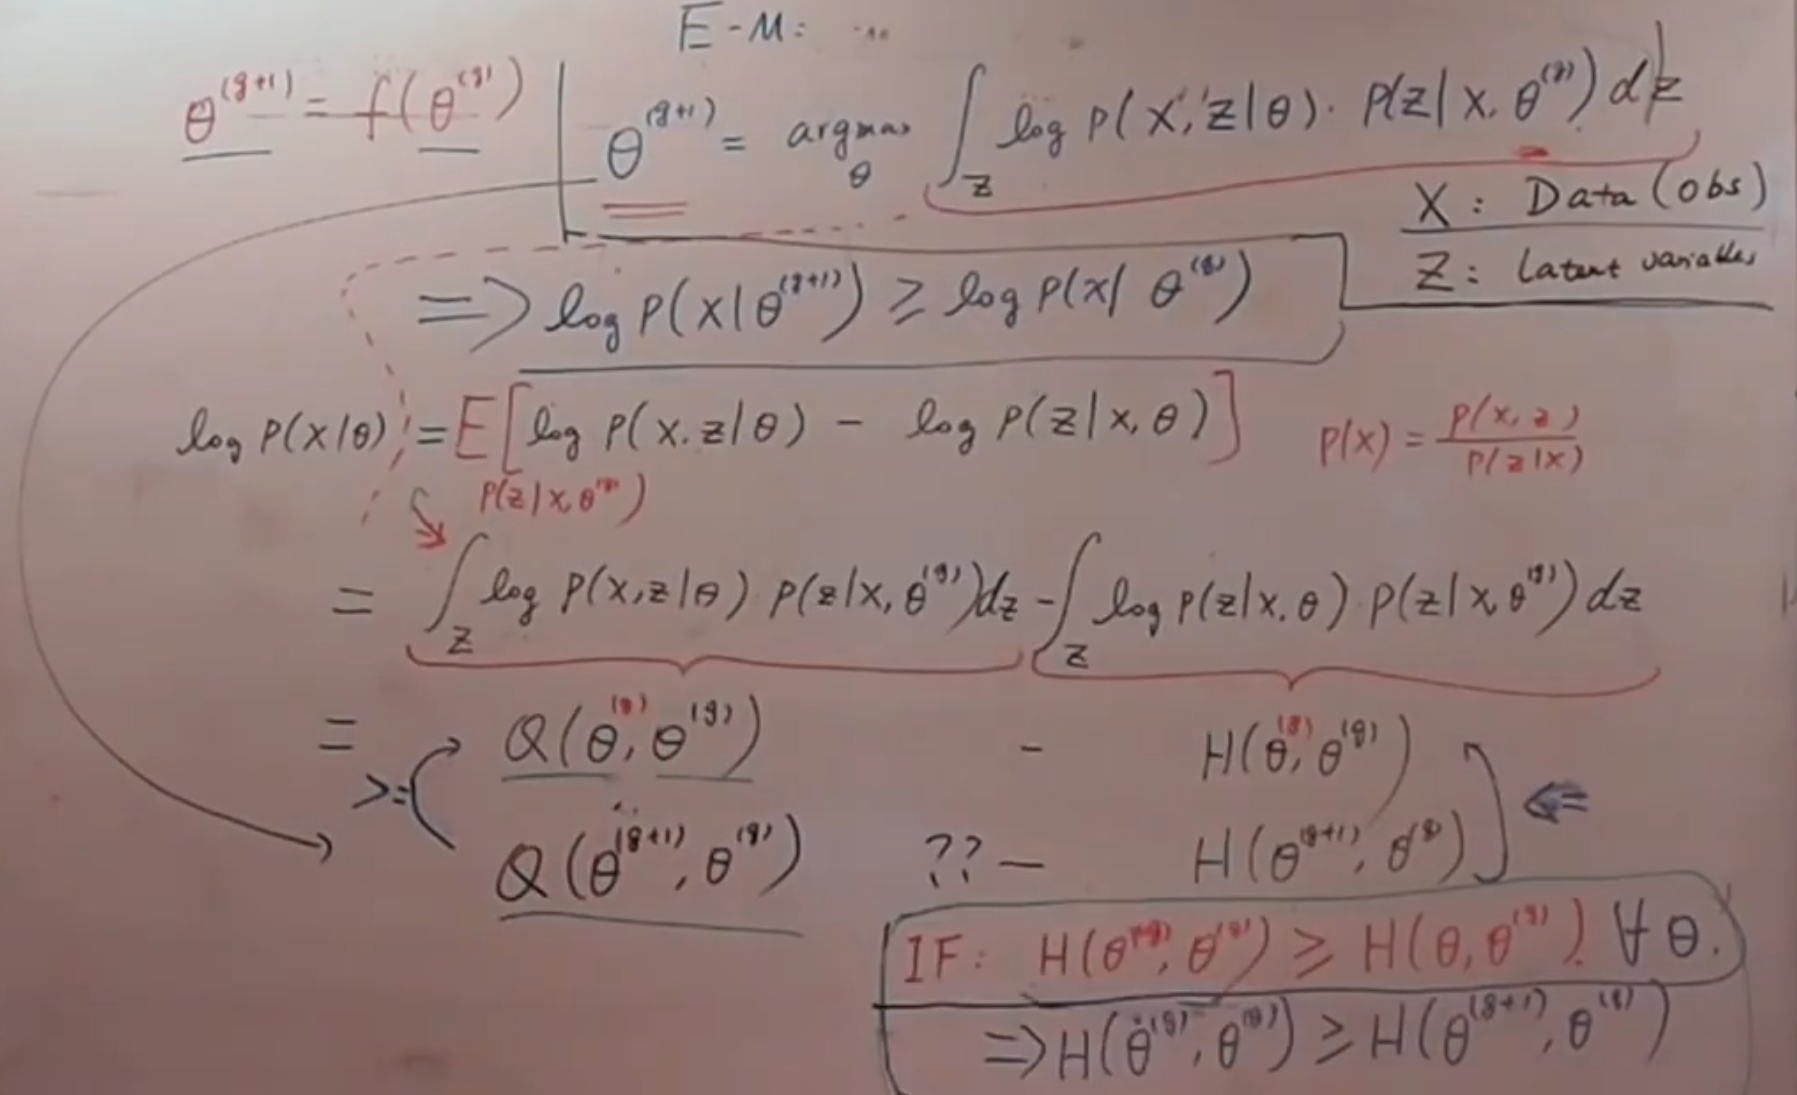 E-M: ...
θ^(g+1) = f(θ^(g))
θ^(g+1) = argmax_θ ∫_Z log P(X, Z|θ) · P(Z|X, θ^(g)) dz
X: Data (obs)
Z: Latent variables
=> log P(X|θ^(g+1)) ≥ log P(X|θ^(g))
log P(X|θ) = E[log P(X, Z|θ) - log P(Z|X, θ)]
P(X) = P(X, Z) / P(Z|X)
P(Z|X, θ^(g))
= ∫_Z log P(X, Z|θ) · P(Z|X, θ^(g)) dz - ∫_Z log P(Z|X, θ) · P(Z|X, θ^(g)) dz
= Q(θ^(g), θ^(g)) - H(θ^(g), θ^(g))
>= <=
Q(θ^(g+1), θ^(g)) ?? - H(θ^(g+1), θ^(g))
IF: H(θ^(g), θ^(g)) ≥ H(θ, θ^(g)) ∀ θ.
=> H(θ^(g), θ^(g)) ≥ H(θ^(g+1), θ^(g))